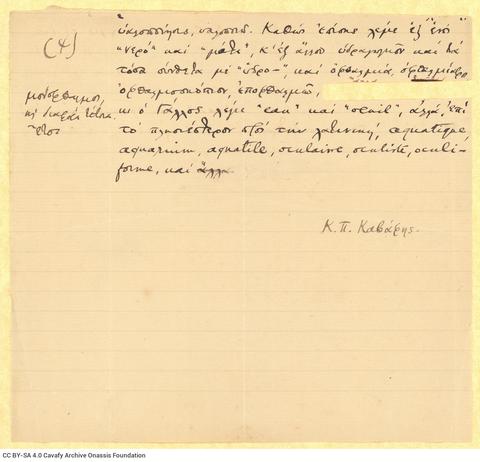 (4)
ὑαλοποίησις, ὑαλοπώλ. Καθὼς ἐπίσης λέμε ἐξ ἑνὸς
"νερὸ" καὶ "μάτι", κ' ἐξ ἄλλου ὑδραγωγεῖον καὶ
τόσα σύνθετα μὲ "ὑδρο-", καὶ ὀφθαλμία, ὀφθαλμίατρο
ὀφθαλμοσκόπιον, ἐποφθαλμιῶ,
μονόφθαλμος,
κι ὁ Γάλλος λέγει "eau" καὶ "œil", ἀλλά, ἐπὶ
τὸ πλησιέστερον πρὸς τὴν λατινικὴ, aquatique,
aquarium, aquatile, oculaire, oculiste, oculi-
forme, καὶ ἄλλα.
Κ. Π. Καβάφης.
CC BY-SA 4.0 Cavafy Archive Onassis Foundation